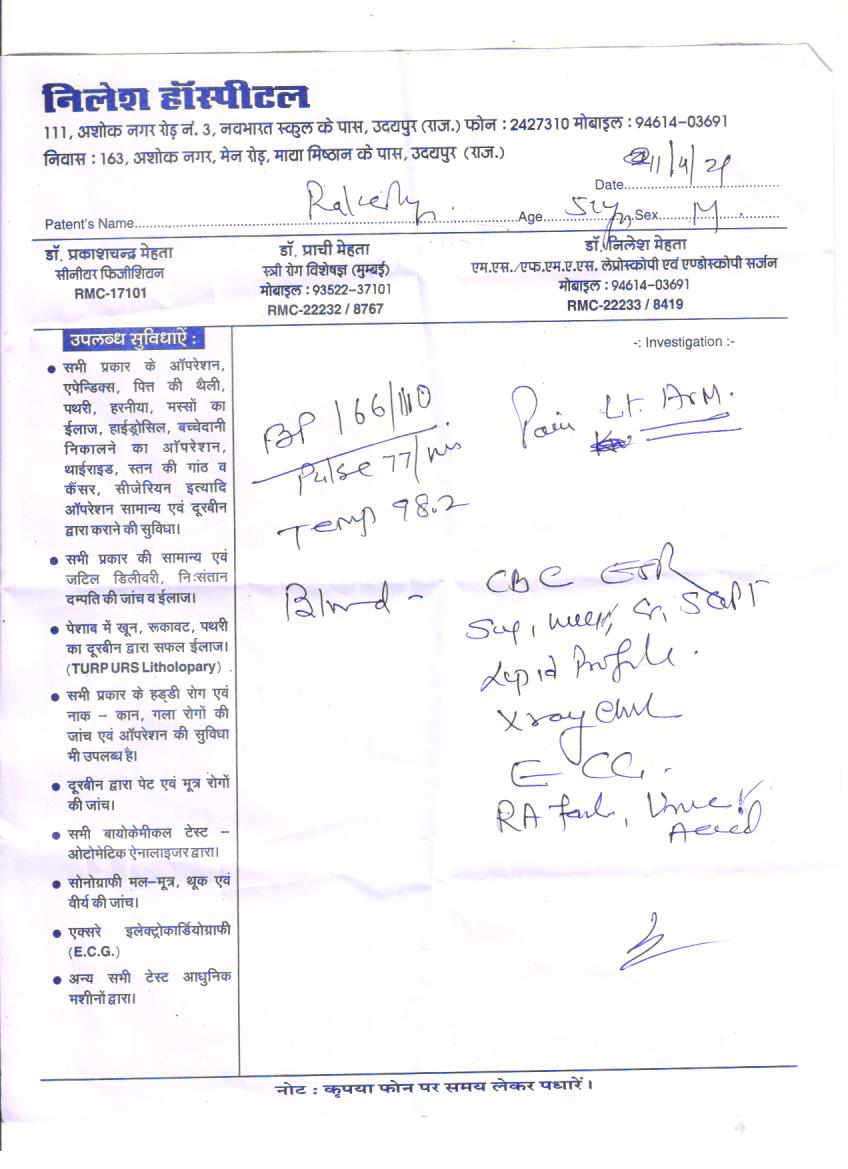 निलेश हॉस्पीटल
111, अशोक नगर रोड़ नं. 3, नवभारत स्कुल के पास, उदयपुर (राज.) फोन : 2427310 मोबाइल : 94614-03691
निवास : 163, अशोक नगर, मेन रोड़, माया मिष्ठान के पास, उदयपुर (राज.)
Date 11/4/21
Patent's Name Age Sex M
डॉ. प्रकाशचन्द्र मेहता
सीनीयर फिजीशियन
RMC-17101
डॉ. प्राची मेहता
स्त्री रोग विशेषज्ञ (मुम्बई)
मोबाइल : 93522-37101
RMC-22232 / 8767
डॉ. निलेश मेहता
एम.एस./एफ.एम.ए.एस. लेप्रोस्कोपी एवं एण्डोस्कोपी सर्जन
मोबाईल : 94614-03691
RMC-22233 / 8419
उपलब्ध सुविधाऐं :
● सभी प्रकार के ऑपरेशन,
एपेन्डिक्स, पित्त की थैली,
पथरी, हरनीया, मस्सों का
ईलाज, हाईड्रोसिल, बच्चेदानी
निकालने का ऑपरेशन,
थाईराइड, स्तन की गांठ व
कैंसर, सीजेरियन इत्यादि
ऑपरेशन सामान्य एवं दूरबीन
द्वारा कराने की सुविधा।
● सभी प्रकार की सामान्य एवं
जटिल डिलीवरी, निःसंतान
दम्पति की जांच व ईलाज।
● पेशाब में खून, रूकावट, पथरी
का दूरबीन द्वारा सफल ईलाज।
(TURP URS Litholopary)
● सभी प्रकार के हड्डी रोग एवं
नाक – कान, गला रोगों की
जांच एवं ऑपरेशन की सुविधा
भी उपलब्ध है।
● दूरबीन द्वारा पेट एवं मूत्र रोगों
की जांच।
● सभी बायोकेमीकल टेस्ट –
ओटोमेटिक ऐनालाइजर द्वारा।
● सोनोग्राफी मल–मूत्र, थूक एवं
वीर्य की जांच।
● एक्सरे इलेक्ट्रोकार्डियोग्राफी
(E.C.G.)
● अन्य सभी टेस्ट आधुनिक
मशीनों द्वारा।
-: Investigation :-
BP 166/110
Pulse 77/min
Temp 98.2
Pain Lt. Arm.
Blood - CBC ESR
SGPT
Lipid Profile.
Xray Chest
ECG.
RA factor, Uric
Aced
नोट : कृपया फोन पर समय लेकर पधारें।